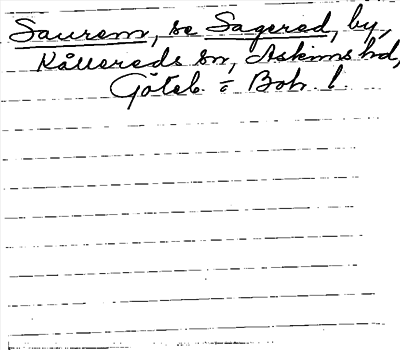 Saurem, se Sagered, by,
Kållereds sn, Askims hd,
Göteb. = Boh. l.